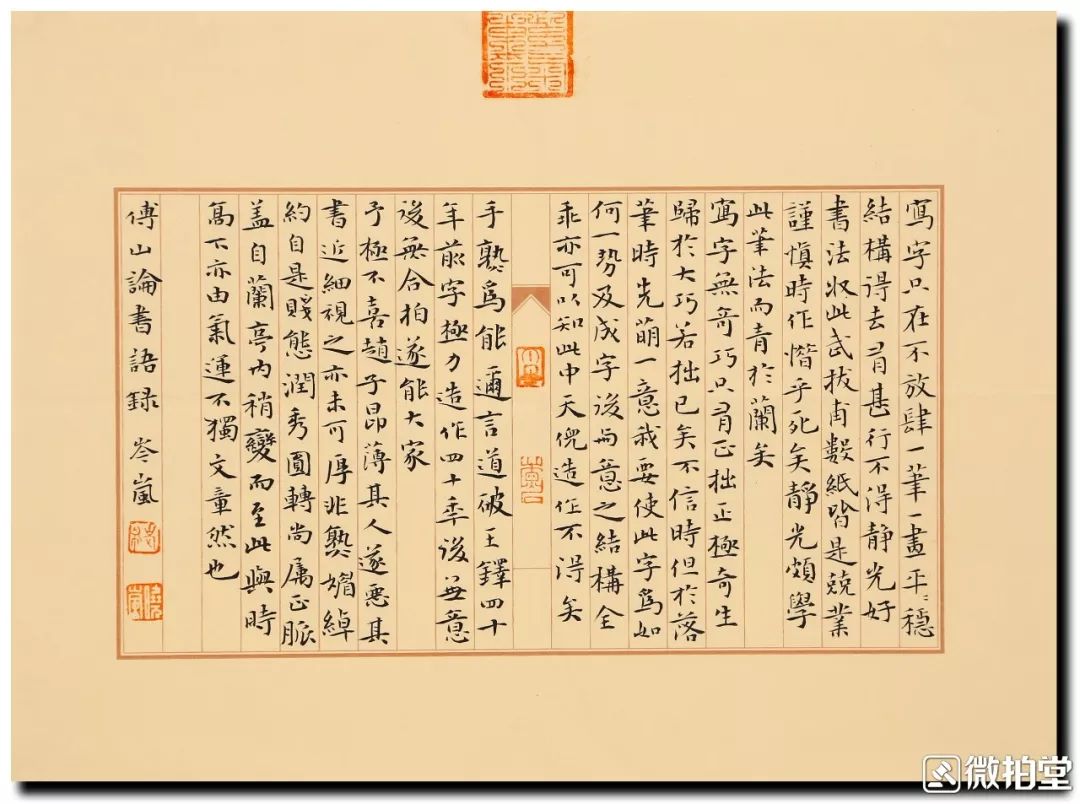 寫字只在不放肆一筆一畫平〻穩
結構得去有甚行不得静光好
書法收此武拔甫數紙皆是兢業
謹慎時作惜乎死矣靜光頗學
此筆法而青於蘭矣
寫字無奇巧只有正拙正極奇生
歸於大巧若拙已矣不信時但於落
筆時先萌一意我要使此字爲如
何一勢及成字後與意之結構全
乖亦可以知此中天倪造作不得矣
手熟爲能邇言道破王鐸四十
年前字極力造作四十年後無意
後無合拍遂能大家
予極不喜趙子昂薄其人遂惡其
書近細視之亦未可厚非熟媚綽
約自是賤態潤秀圓轉尚属正脈
盖自蘭亭内稍變而至此與時
高下亦由氣運不獨文章然也
傅山論書語録 岑嵐
微拍堂